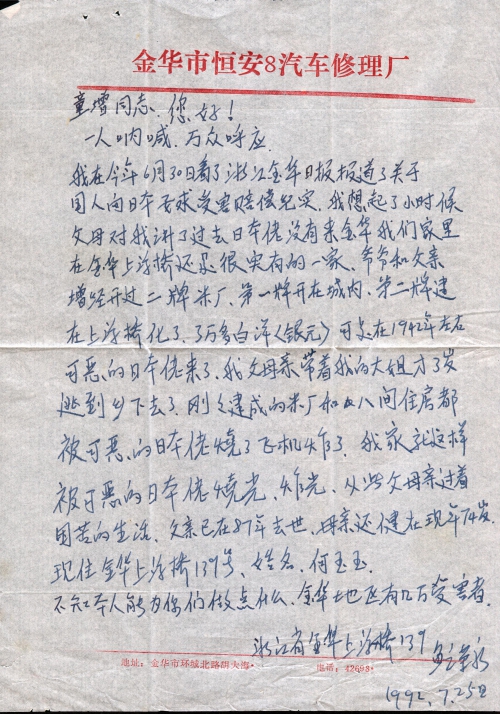 金华市恒安8汽车修理厂
童增同志、您好！
一人呐喊，万众呼应
我在今年6月30日看了浙江金华日报报道了关于
国人向日本要求受害赔偿纪实，我想起了小时候
父母对我讲了过去日本佬没有来金华我们家里
在金华上浮桥还是很实有的一家、爷爷和父亲
增经开过二牌米厂、第一牌开在城内、第二牌建
在上浮桥化了、3万多白洋《银元》可是在1942年左右
可恶的日本佬来了、我父母亲带着我的大姐才3岁
逃到乡下去了、刚刚建成的米厂和 八间住居都
被可恶的日本佬烧了飞机炸了、我家就这样
被可恶的日本佬烧光、炸光、从此父母亲过着
困苦的生活、父亲已在87年去世、母亲还健在现年74岁
现住金华上浮桥139号、姓名、何玉玉
不知本人能为你们做点什么、金华地区有几万受害者
浙江省金华上浮桥139
地址：金华市环城北路 电话：42698
1992.7.25日